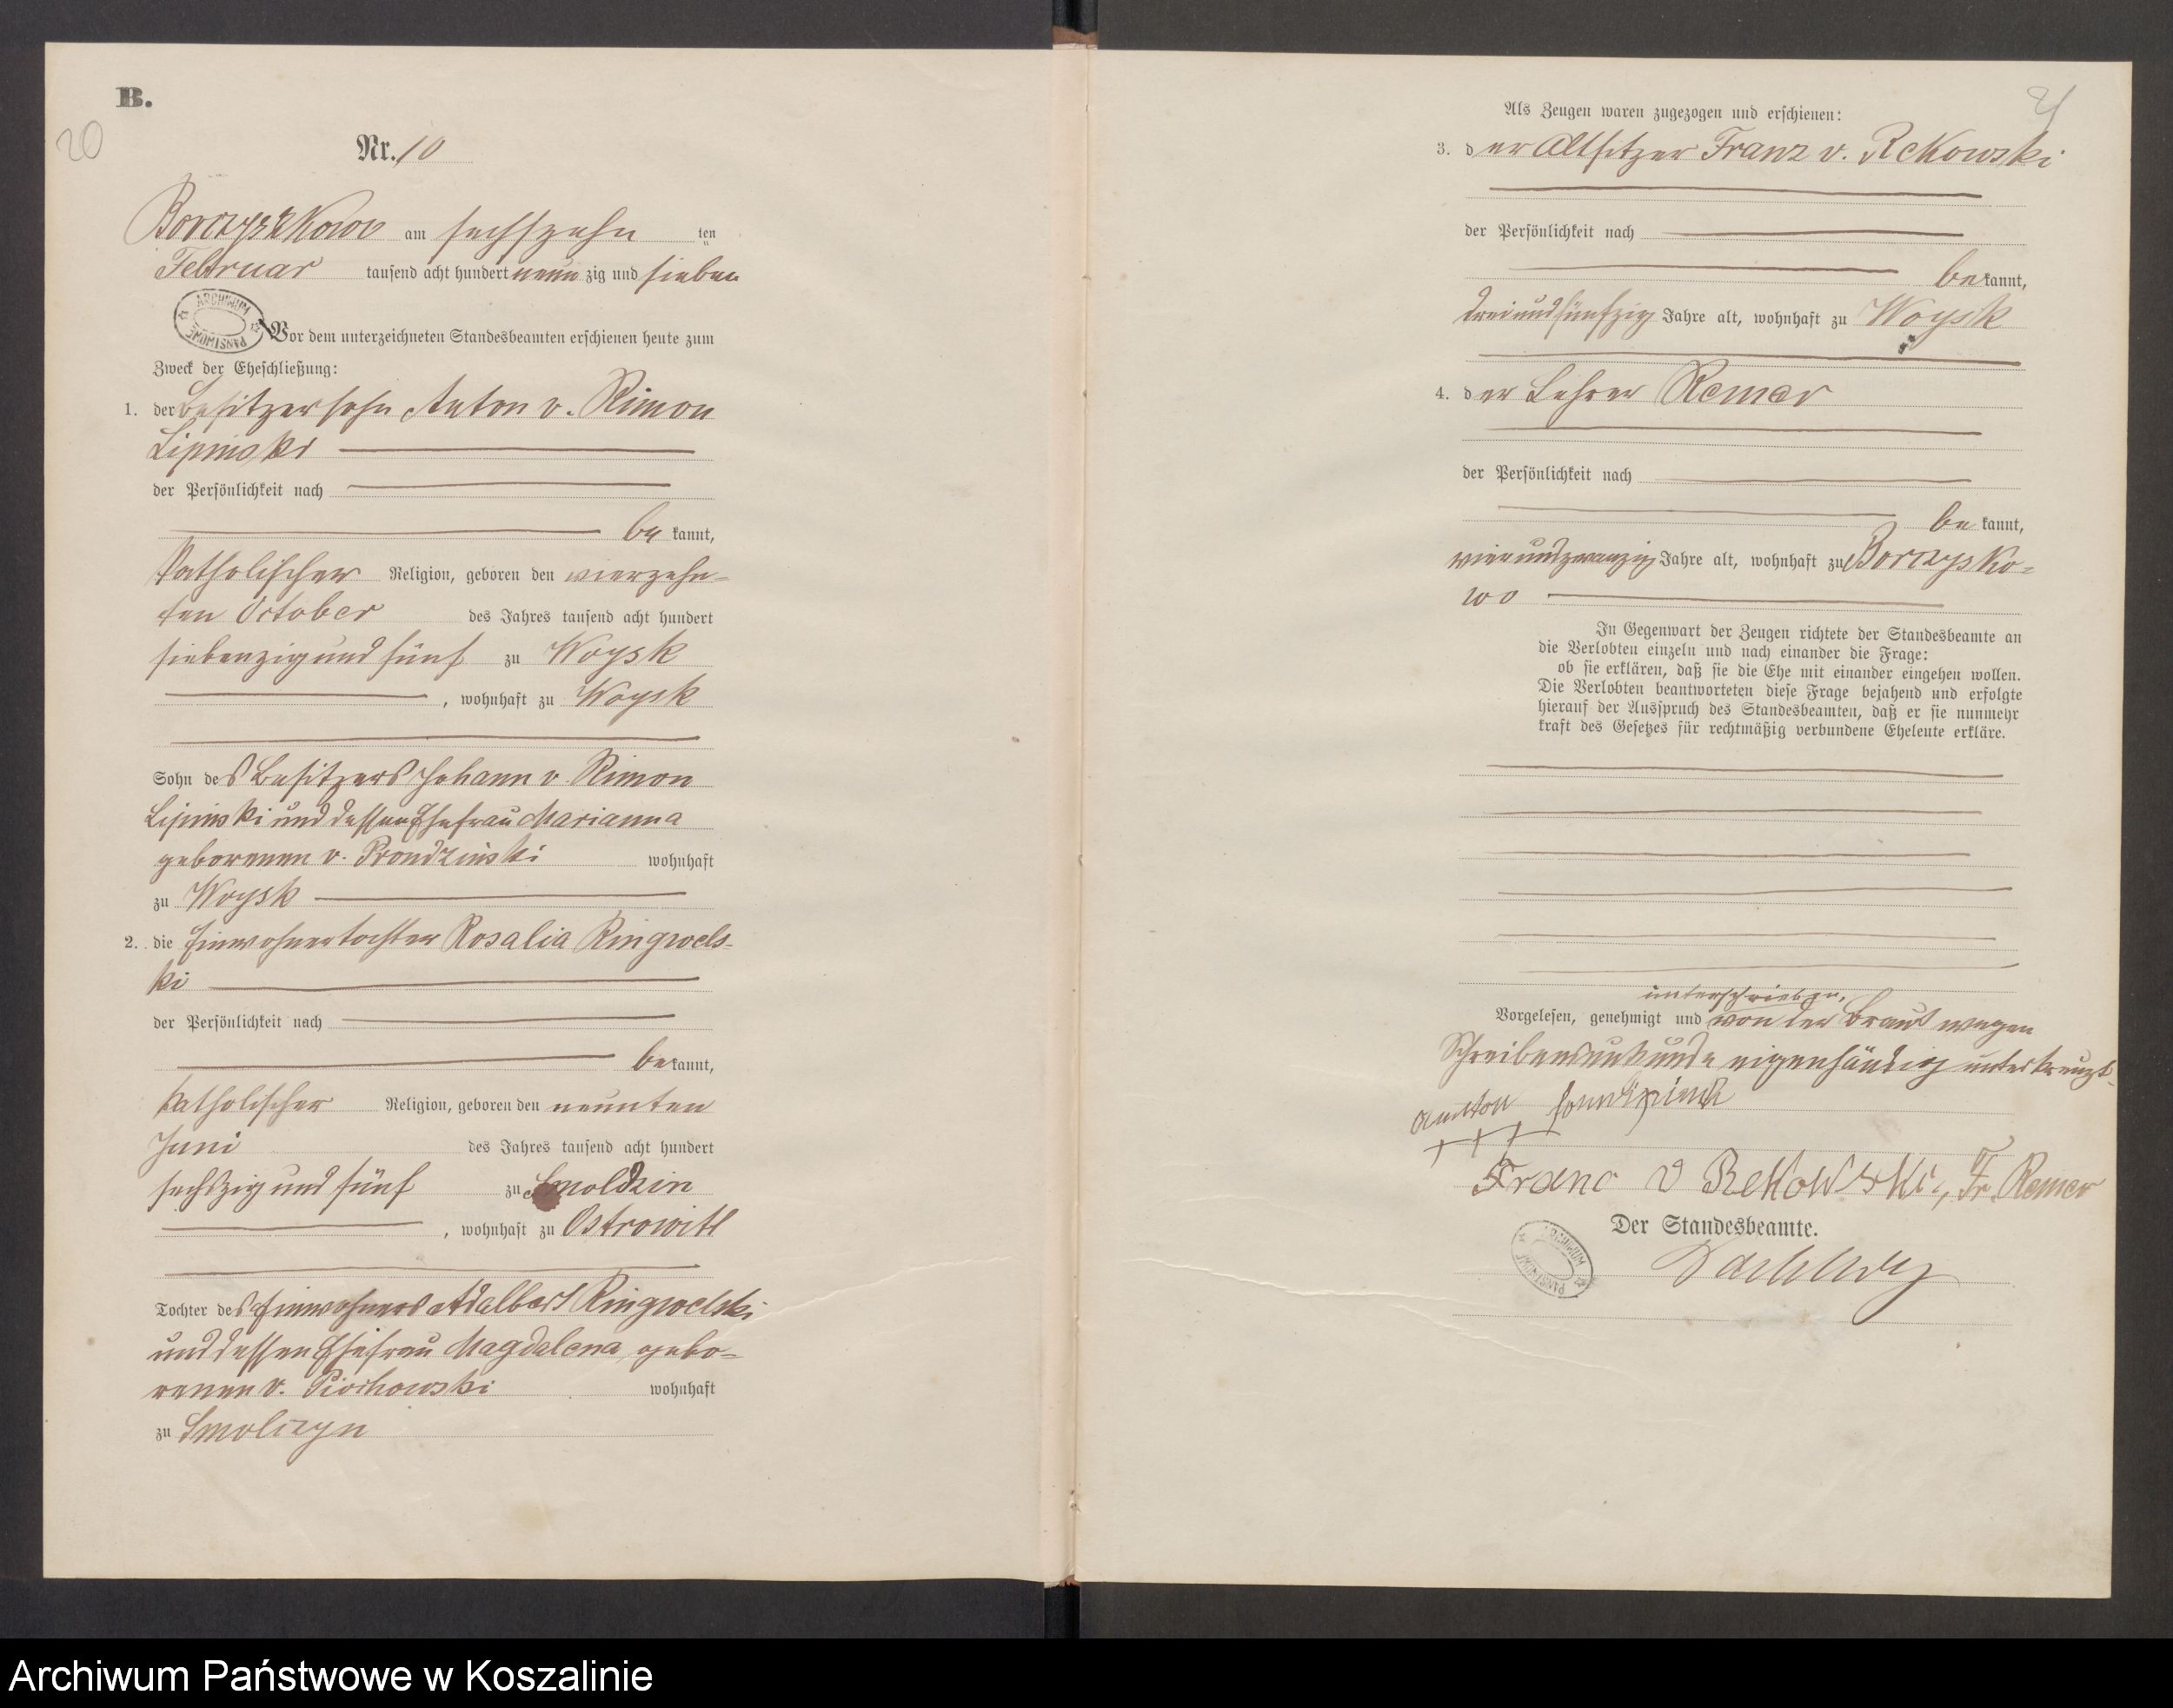 B.
20
Nr. 10
Borczyskowo am sechszehn ten
Februar tausend acht hundert neun zig und sieben
ARCHIWUM PAŃSTWOWE
Vor dem unterzeichneten Standesbeamten erschienen heute zum
Zweck der Eheschließung:
1. der Besitzersohn Anton v. Rimon
Lipinski
der Persönlichkeit nach
be kannt,
katholischer Religion, geboren den vierzehn-
ten October des Jahres tausend acht hundert
siebenzig und fünf zu Woysk
, wohnhaft zu Woysk
Sohn des Besitzers Johann v. Rimon
Lipinski und dessen Ehefrau Marianna
geborenen v. Prondzinski wohnhaft
zu Woysk
2. die Einwohnertochter Rosalia Ringwels-
ki
der Persönlichkeit nach
be kannt,
katholischer Religion, geboren den neunten
Juni des Jahres tausend acht hundert
sechszig und fünf zu Smoldzin
, wohnhaft zu Ostrowitt
Tochter des Einwohners Adalbert Ringwelski
und dessen Ehefrau Magdalena gebo-
renen v. Piochowski wohnhaft
zu Smolczyn
Als Zeugen waren zugezogen und erschienen:
3. der Altsitzer Franz v. Rekowski
der Persönlichkeit nach
be kannt,
dreiundfünfzig Jahre alt, wohnhaft zu Woysk
4. der Lehrer Remer
der Persönlichkeit nach
be kannt,
vierundzwanzig Jahre alt, wohnhaft zu Borczysko-
wo
In Gegenwart der Zeugen richtete der Standesbeamte an
die Verlobten einzeln und nach einander die Frage:
ob sie erklären, daß sie die Ehe mit einander eingehen wollen.
Die Verlobten beantworteten diese Frage bejahend und erfolgte
hierauf der Ausspruch des Standesbeamten, daß er sie nunmehr
kraft des Gesetzes für rechtmäßig verbundene Eheleute erkläre.
unterschrieben,
Vorgelesen, genehmigt und von der Braut wegen
Schreibensunkunde eigenhändig unterkreuzt.
Anton
+++
Franc v Rekowski, Fr. Remer
Der Standesbeamte.
ARCHIWUM PAŃSTWOWE
Archiwum Państwowe w Koszalinie